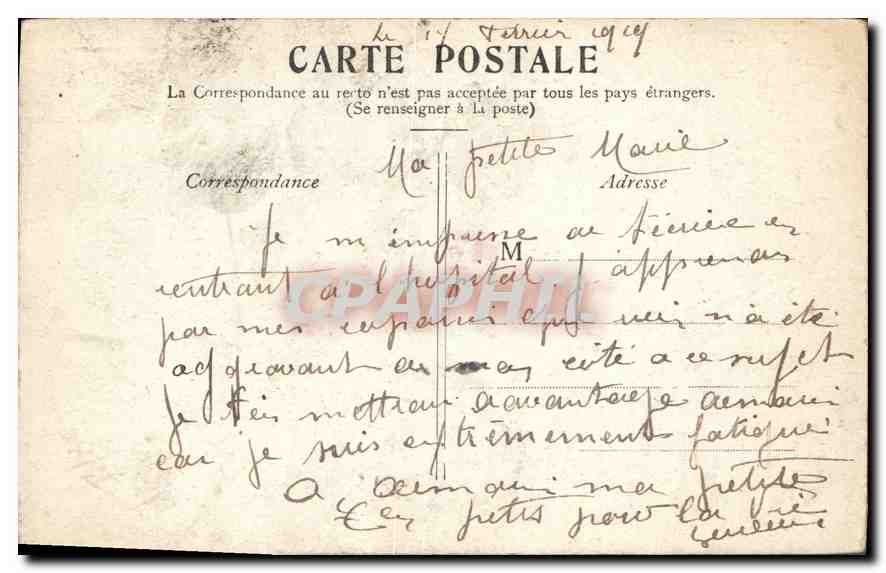 Le 17 Février 1919
CARTE POSTALE
La Correspondance au recto n'est pas acceptée par tous les pays étrangers.
(Se renseigner à la poste)
Ma petite Marie
Correspondance
Adresse
Je m'empresse de t'écrire en
M
rentrant à l'hopital, j'apprends
CPAPHIL
par mes copains que rien n'a été
aggravant de mon coté a ce sujet
Je t'en mettrai davantage demain
car je suis extrèmement fatigué
A demain ma petite
Ton petit pour la vie